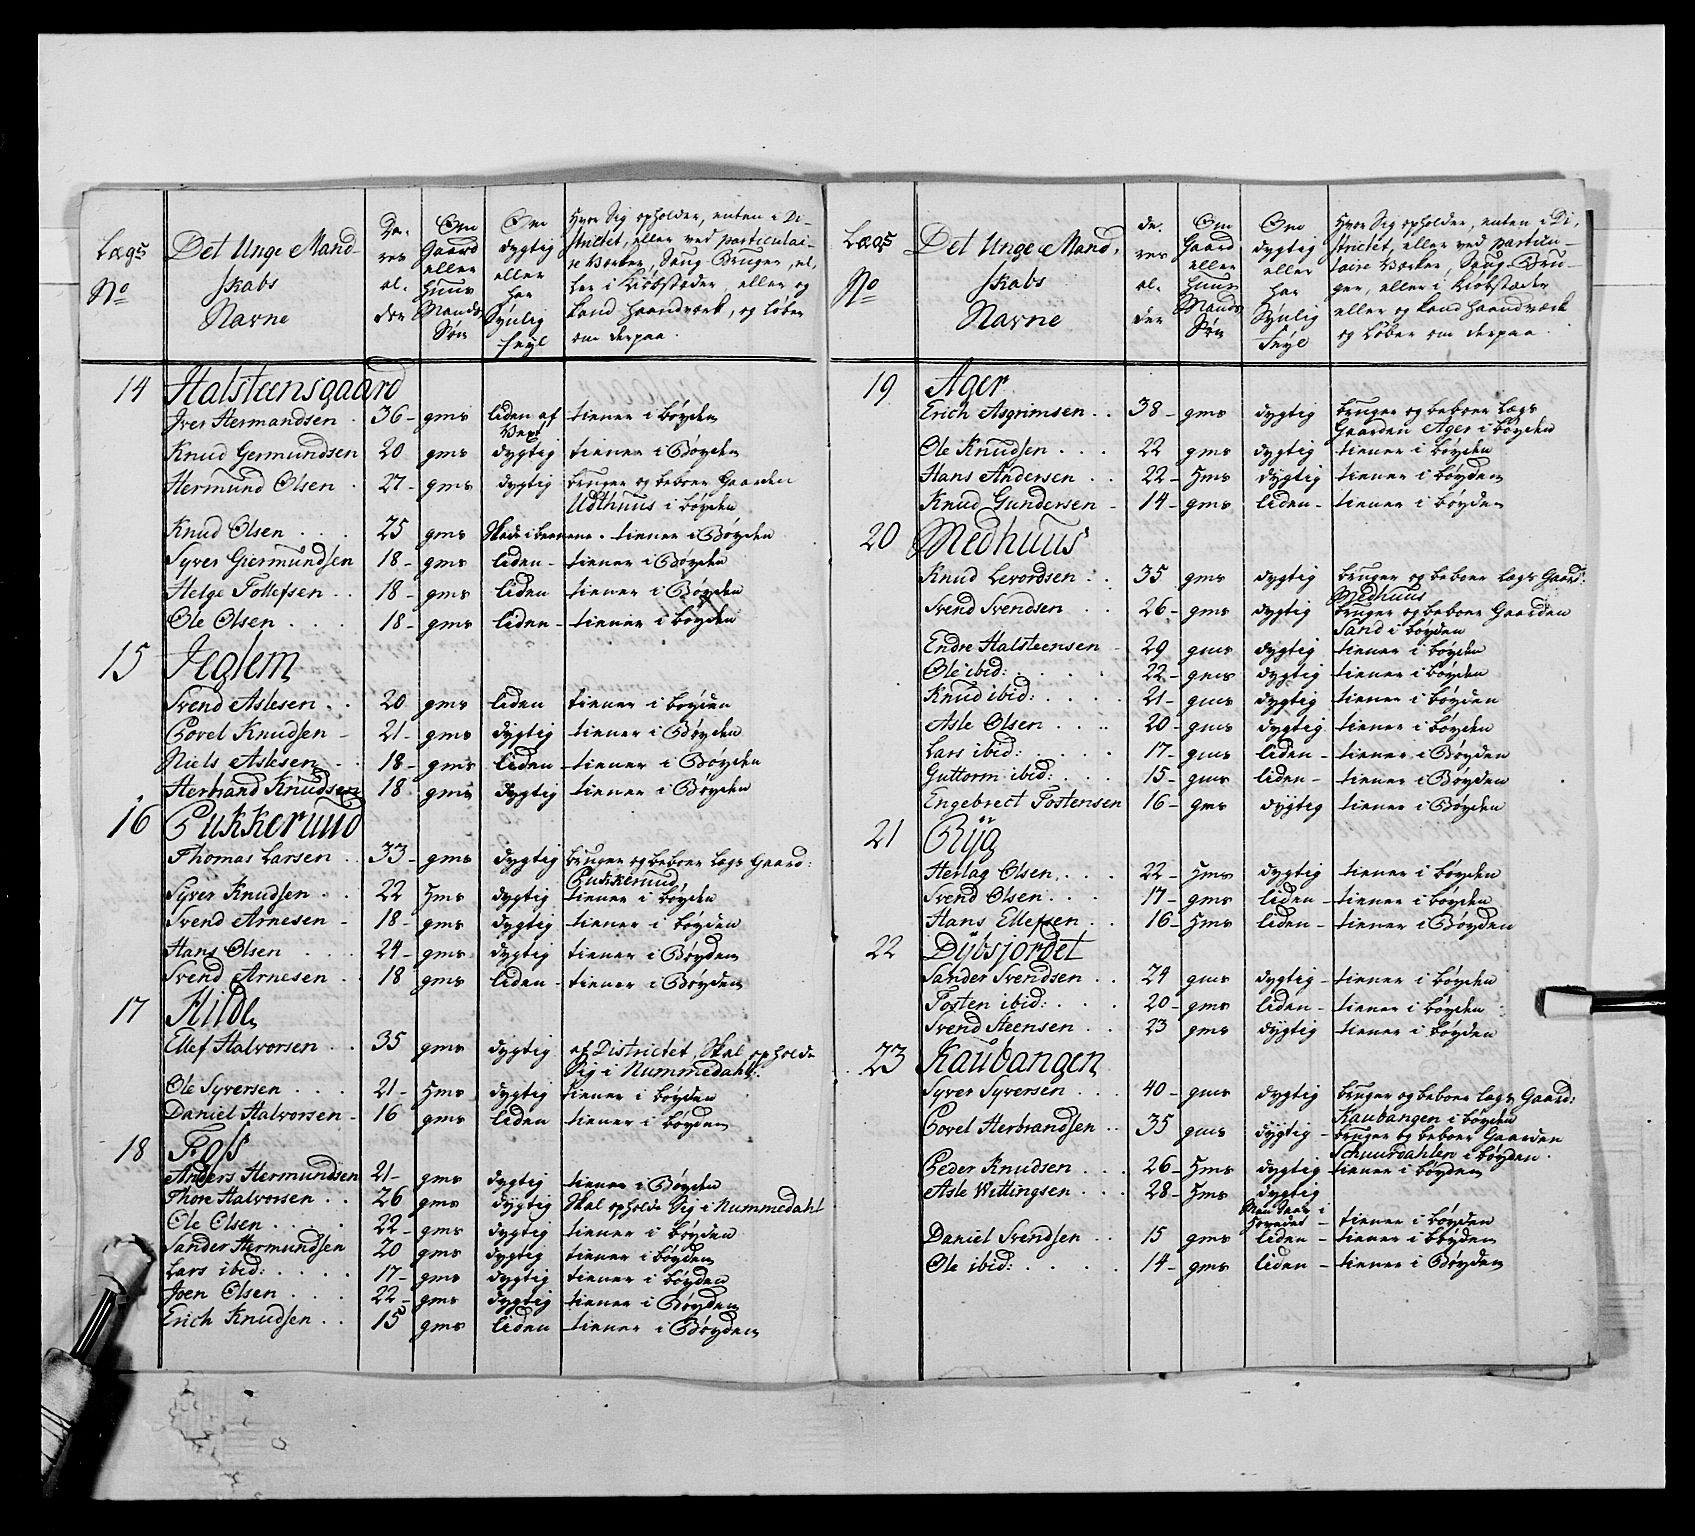 Lægs
No
Det Unge Mand-
skabs
Navne
De-
res
al-
der
Om
Gaard
eller
Huus
Mands
Søn
Om
dygtig
eller
har
Synlig
feyl
Hvor Sig opholder, enten i Di-
strictet, eller ved particulai-
re Værker, Saug-Bruger, el-
ler i Kiøbstæder, eller og
kand haandværk, og løber
om derpaa.
14 Halsteensgaard
Iver Hermandsen 36 - gms liden af Vext tiener i bøyden
Knud Germundsen 20 gms dygtig tiener i Bøyden
Hermund Olsen 27 - gms dygtig bruger og beboer Gaarden
Udthuus i bøyden
Knud Olsen 25 gms Skade i beenene - tiener i Bøyden
Syver Giermundsen 18 - gms liden - tiener i Bøyden
Helge Tollefsen 18 - gms liden tiener i Bøyden
Ole Olsen 18 - gms liden - tiener i bøyden
15 Jeglem
Svend Aslesen 20 gms liden tiener i bøyden
Povel Knudsen 21 - gms dygtig tiener i Bøyden
Niels Aslesen 18 - gms liden - tiener i Bøyden
Herbrand Knudsen 18 gms dygtig tiener i Bøyden
16 Pukkerud
Thomas Larsen 33 - gms dygtig bruger og beboer Lægs Gaard:
Pukkerud
Syver Knudsen 22 Hms dygtig tiener i bøyden
Svend Arnesen 18 - gms dygtig tiener i bøyden
Hans Olsen 24 - gms dygtig tiener i Bøyden
Svend Arnesen 18 gms liden - tiener i Bøyden
17 Hilde
Ellef Halvorsen 35 gms dygtig af Districtet, Skal opholde
Sig i Nummedahl:
Ole Syversen 21 - Hms dygtig tiener i bøyden
Daniel Halvorsen 16 gms liden tiener i bøyden
18 Foss
Anders Hermundsen 21 - gms dygtig tiener i Bøyden
Thore Halvorsen 26 gms dygtig Skal opholde Sig i Nummedahl
Ole Olsen 22 - gms dygtig tiener i bøyden
Sander Hermundsen 20 gms dygtig tiener i bøyden
Lars ibid: 17 - gms dygtig tiener i bøyden
Joen Olsen 22 - gms dygtig tiener i Bøyden
Erich Knudsen 15 gms liden tiener i Bøyden
Lægs
No
Det Unge Mand-
skabs
Navne
De-
res
al-
der
Om
Gaard
eller
Huus
Mands
Søn
Om
dygtig
eller
har
Synlig
Feyl
Hvor Sig opholder, enten i Di-
strictet, eller ved particu-
laire Værker, Saug-Bru-
ger, eller i Kiøbstæder
eller og kand haandværk
og løber om derpaa.
19 Ager
Erich Asgrimsen 38 - gms dygtig bruger og beboer Lægs
Gaarden Ager i bøyden
Ole Knudsen 22 gms dygtig tiener i bøyden
Hans Andersen 22 - Hms dygtig tiener i bøyden
Knud Gundersen 14 - gms liden - tiener i bøyden
20 Medhuus
Knud Levordsen 35 gms dygtig bruger og beboer Lægs Gaard:
Medhuus
Svend Svendsen 26 - gms dygtig bruger og beboer Gaarden
Sand i bøyden
Endre Halsteensen 29 gms dygtig tiener i bøyden
Ole ibid: 22 - gms dygtig tiener i bøyden
Knud ibid: 21 - gms dygtig tiener i bøyden
Asle Olsen 20 - gms dygtig tiener i bøyden
Lars ibid: 17 - gms liden - tiener i Bøyden
Guttorm ibid: 15 - gms liden - tiener i Bøyden
Engebrect Tostensen 16 - gms dygtig tiener i Bøyden
21 Ryg
Herlag Olsen 22 - Hms dygtig tiener i bøyden
Svend Olsen 17 - gms liden - tiener i bøyden
Hans Ellefsen 16 - Hms liden - tiener i Bøyden
22 Dybsjordet
Sander Svendsen 24 gms dygtig - tiener i bøyden
Tosten ibid: 20 - gms liden - tiener i bøyden
Svend Steensen 23 gms dygtig tiener i bøyden
23 Kaubangen
Syver Syversen 40 - gms dygtig bruger og beboer Lægs Gaard:
Kaubangen i bøyden
Povel Herbrandsen 35 gms dygtig - bruger og beboer Gaarden
Schuurdahlen i bøyden.
Peder Knudsen 26 - Hms dygtig tiener i bøyden
Asle Wittingsen 28 - Hms dygtig
Men Skade i
hovedet - tiener i bøyden
Daniel Svendsen 15 gms liden - tiener i bøyden
Ole ibid: 14 - gms liden - tiener i Bøyden